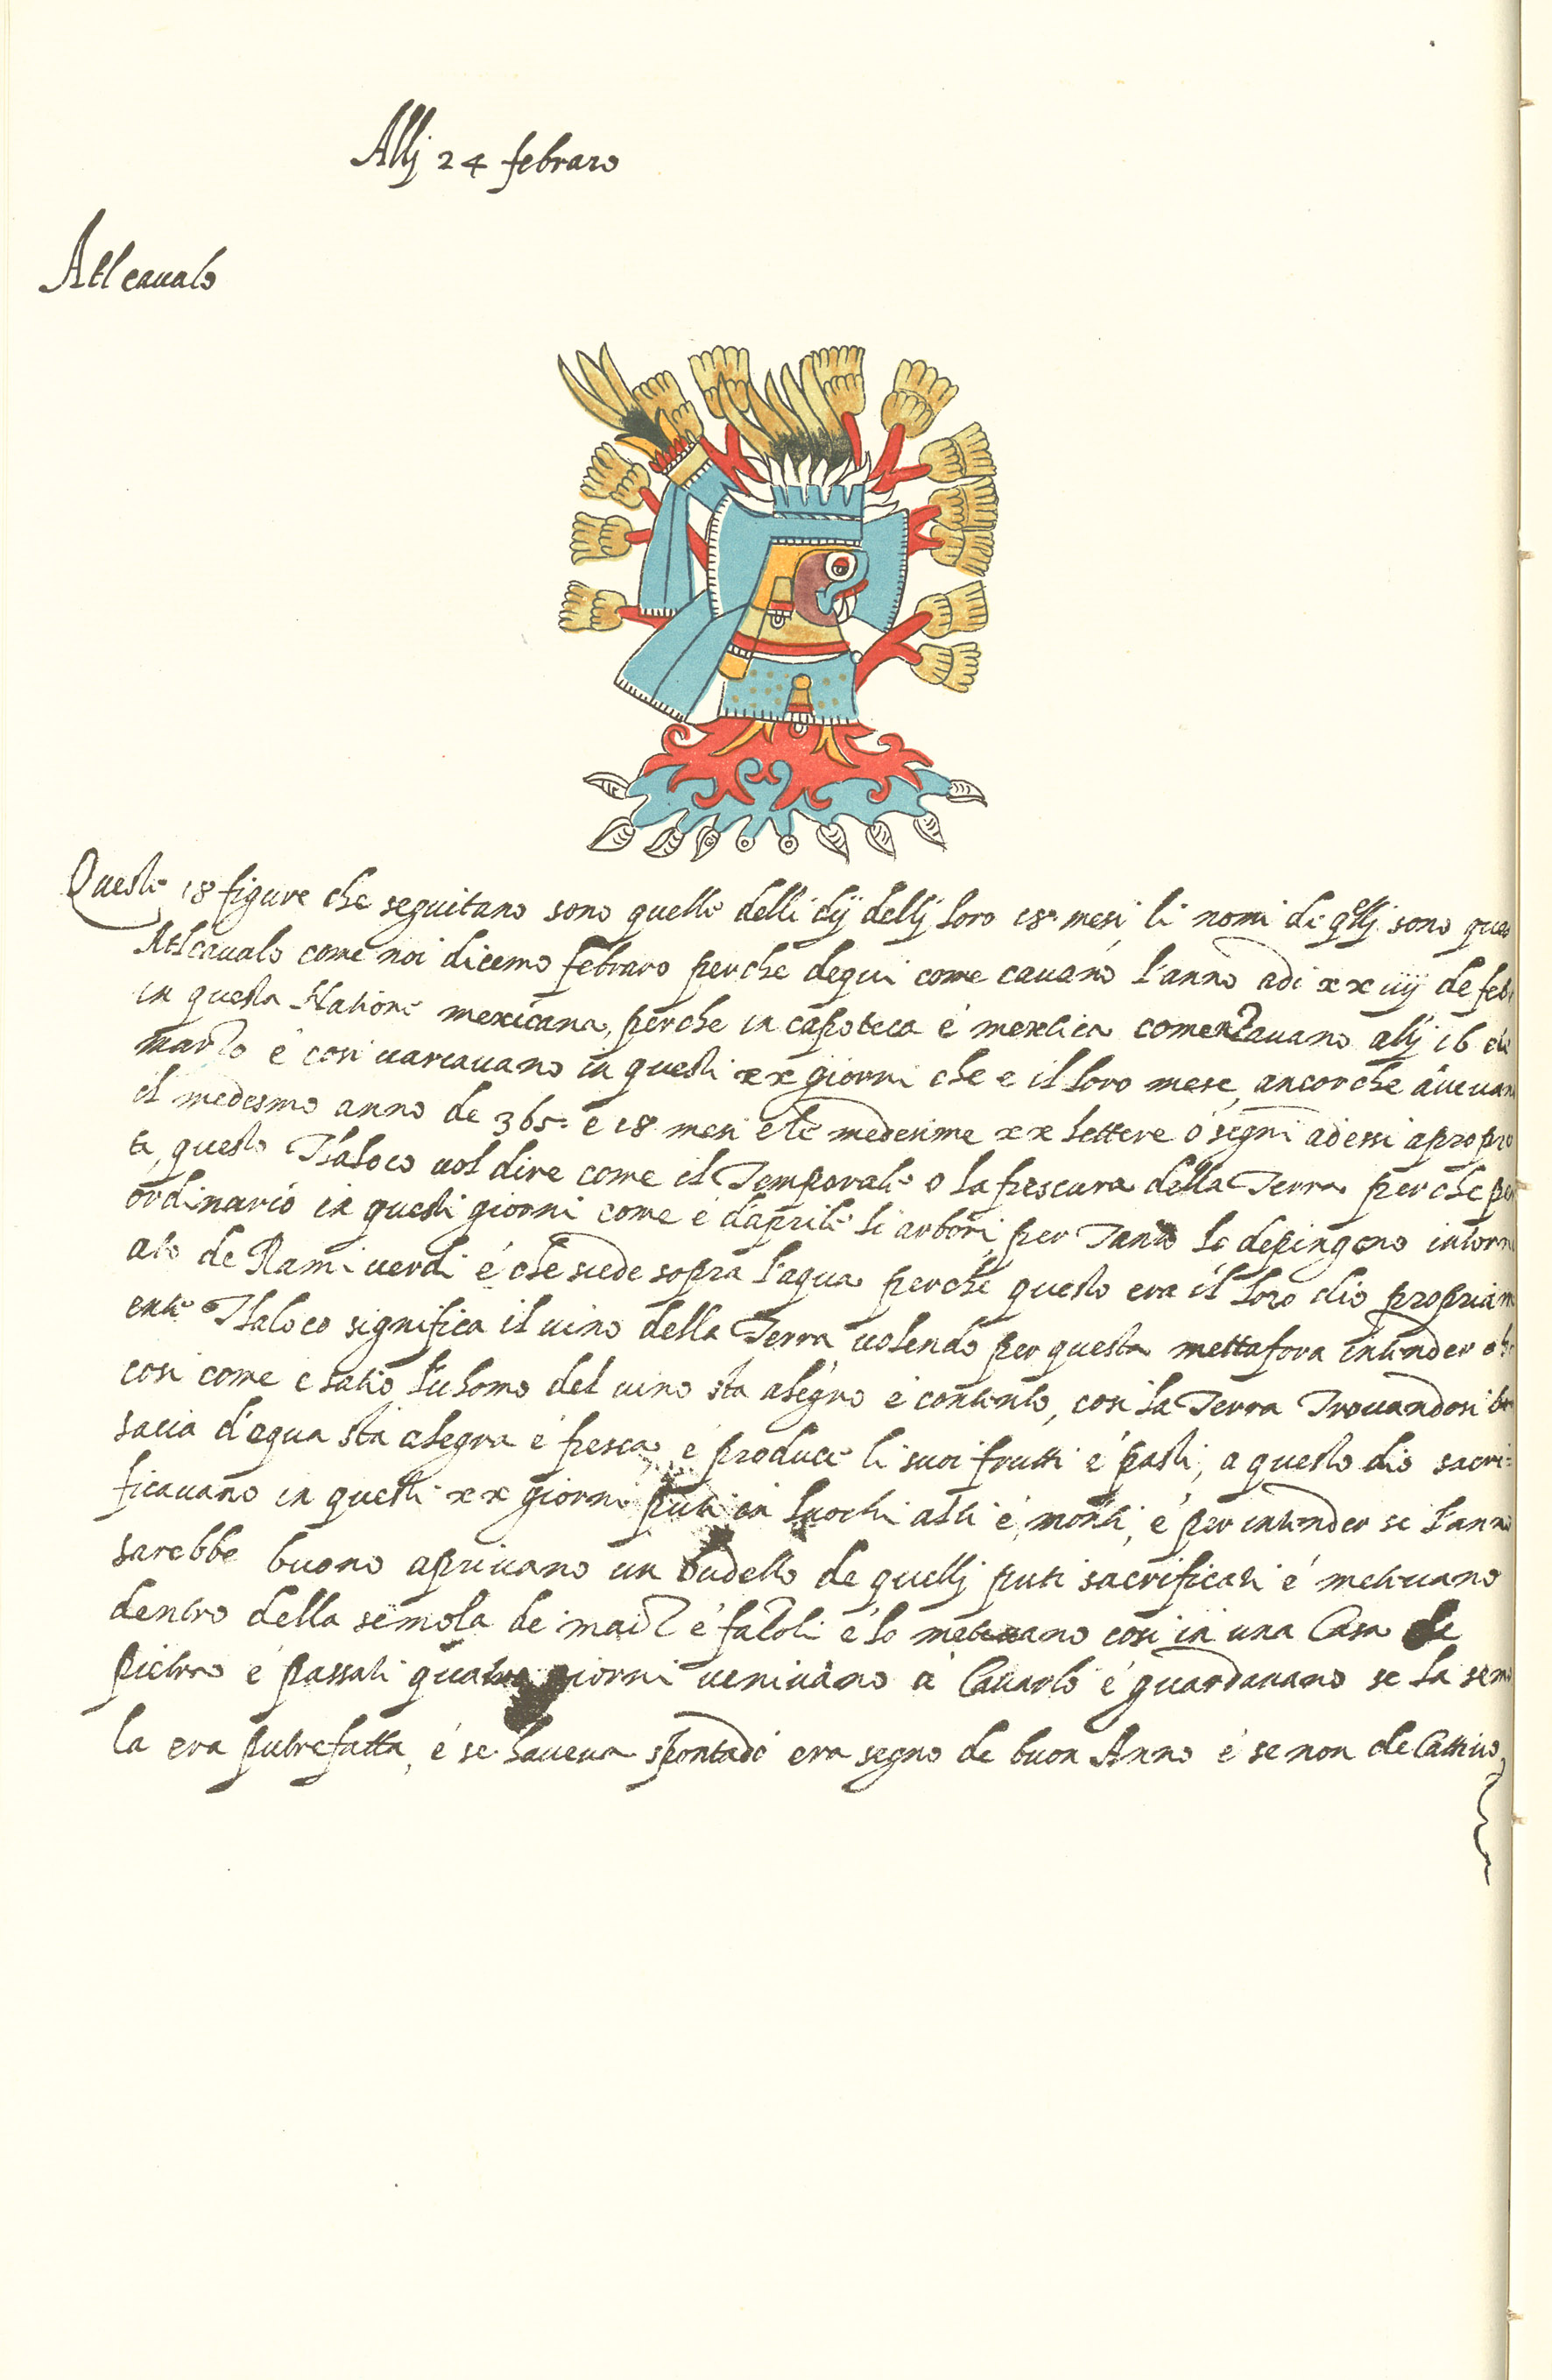 Allj 24 febraro
Atlcaualo
Queste 18 figure che seguitano sono quelle delli dij dellj loro 18 mesi li nomi di qllj sono ques
Atlcaualo come noi dicemo febraro perche dequi come cauano l'anno adi xx iiij de feb
in questa Natione mexicana, perche in capoteca é mextica comenzauano allj 16 de
marzo é cosi uariauano in questi xx giorni che e il loro mese, ancorche aueuan
il medesmo anno de 365. e 18 mesi e le medesime xx lettere ó segni ad essi apropr
ti, questo Tlaloco uol dire come il Temporale o la frescura della Terra perche per
ordinario in questi giorni come e d'aprile li arbori per Tanto lo depingono intorni
ato de Rami uerdi é che siede sopra l'aqua perche questo era il loro dio propriam
ente Tlaloco significa il uino della Terra uolendo per questa mettafora intender che
cosi come e satio l'uhomo del uino sta alegro é contento, cosi la Terra Trouandosi
sacia d'aqua sta alegra é fresca, é produce li suoi frutti é pasti, a questo dio sacri=
ficauano in questi xx giorni puti in luochi alti é monti, é per intender se l'anno
sarebbe buono apriuano un budello de quellj puti sacrificati é meteuano
dentro della semola de maiz é fazoli é lo meteuano cosi in una Casa de
pietra é passati quatro giorni ueniuano á Cauarlo é guardauano se la semo
la era putrefatta, é se haueua spontado era segno de buon Anno é se non de Cattiuo,